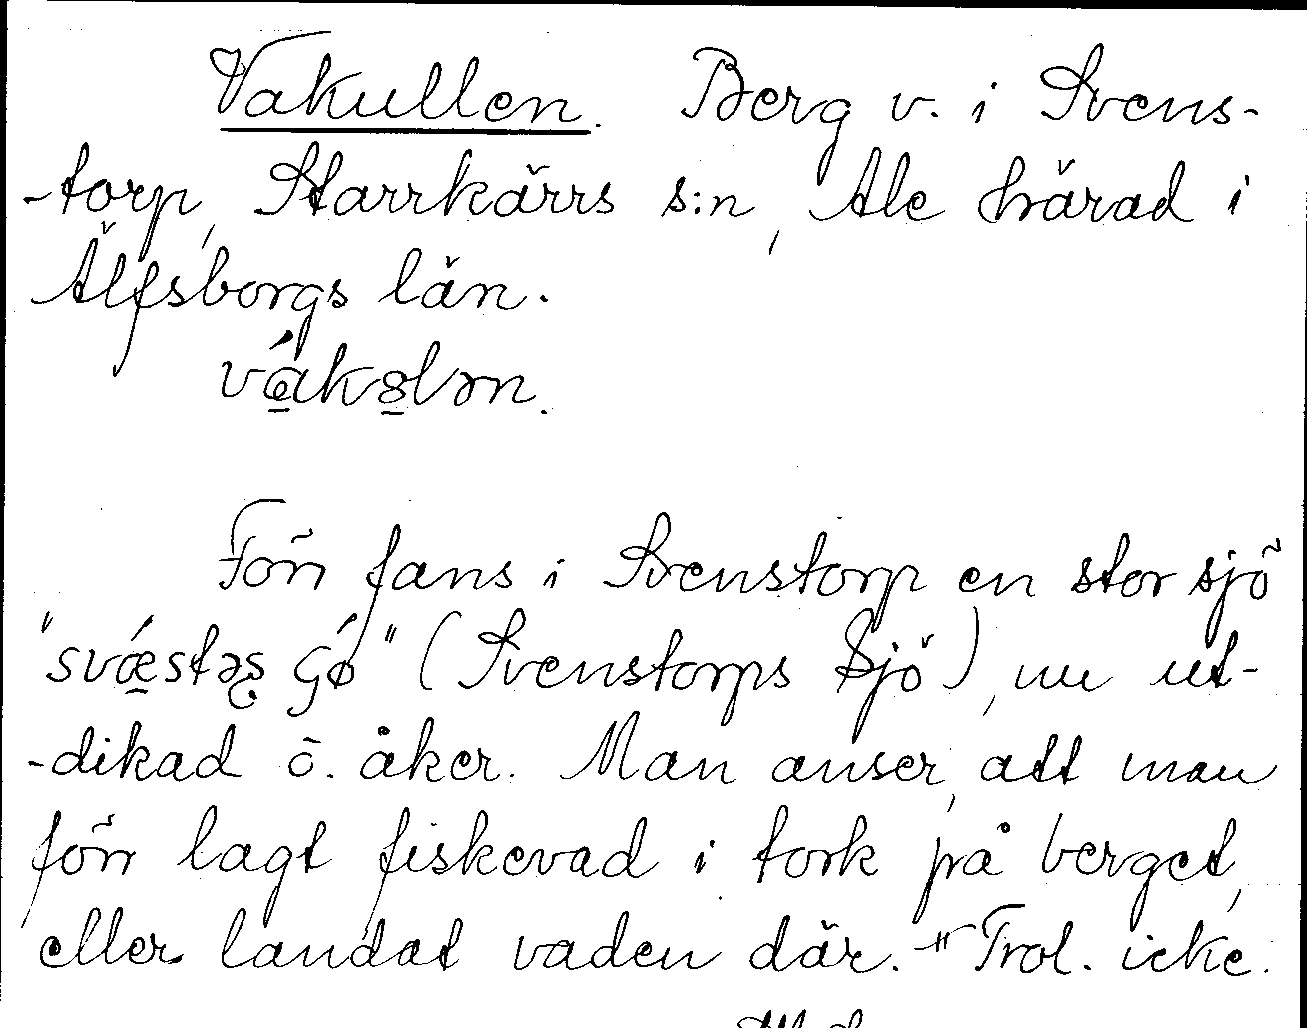 Vakullen. Berg v. i Svens-
-torp, Starrkärrs s:n, Ale härad i
Älfsborgs län.

Förr fans i Svenstorp en stor sjö
(Svenstorps Sjö), nu ut-
-dikad o. åker. Man anser, att man
förr lagt fiskevad i tork på berget,
eller landat vaden där. Trol. icke.